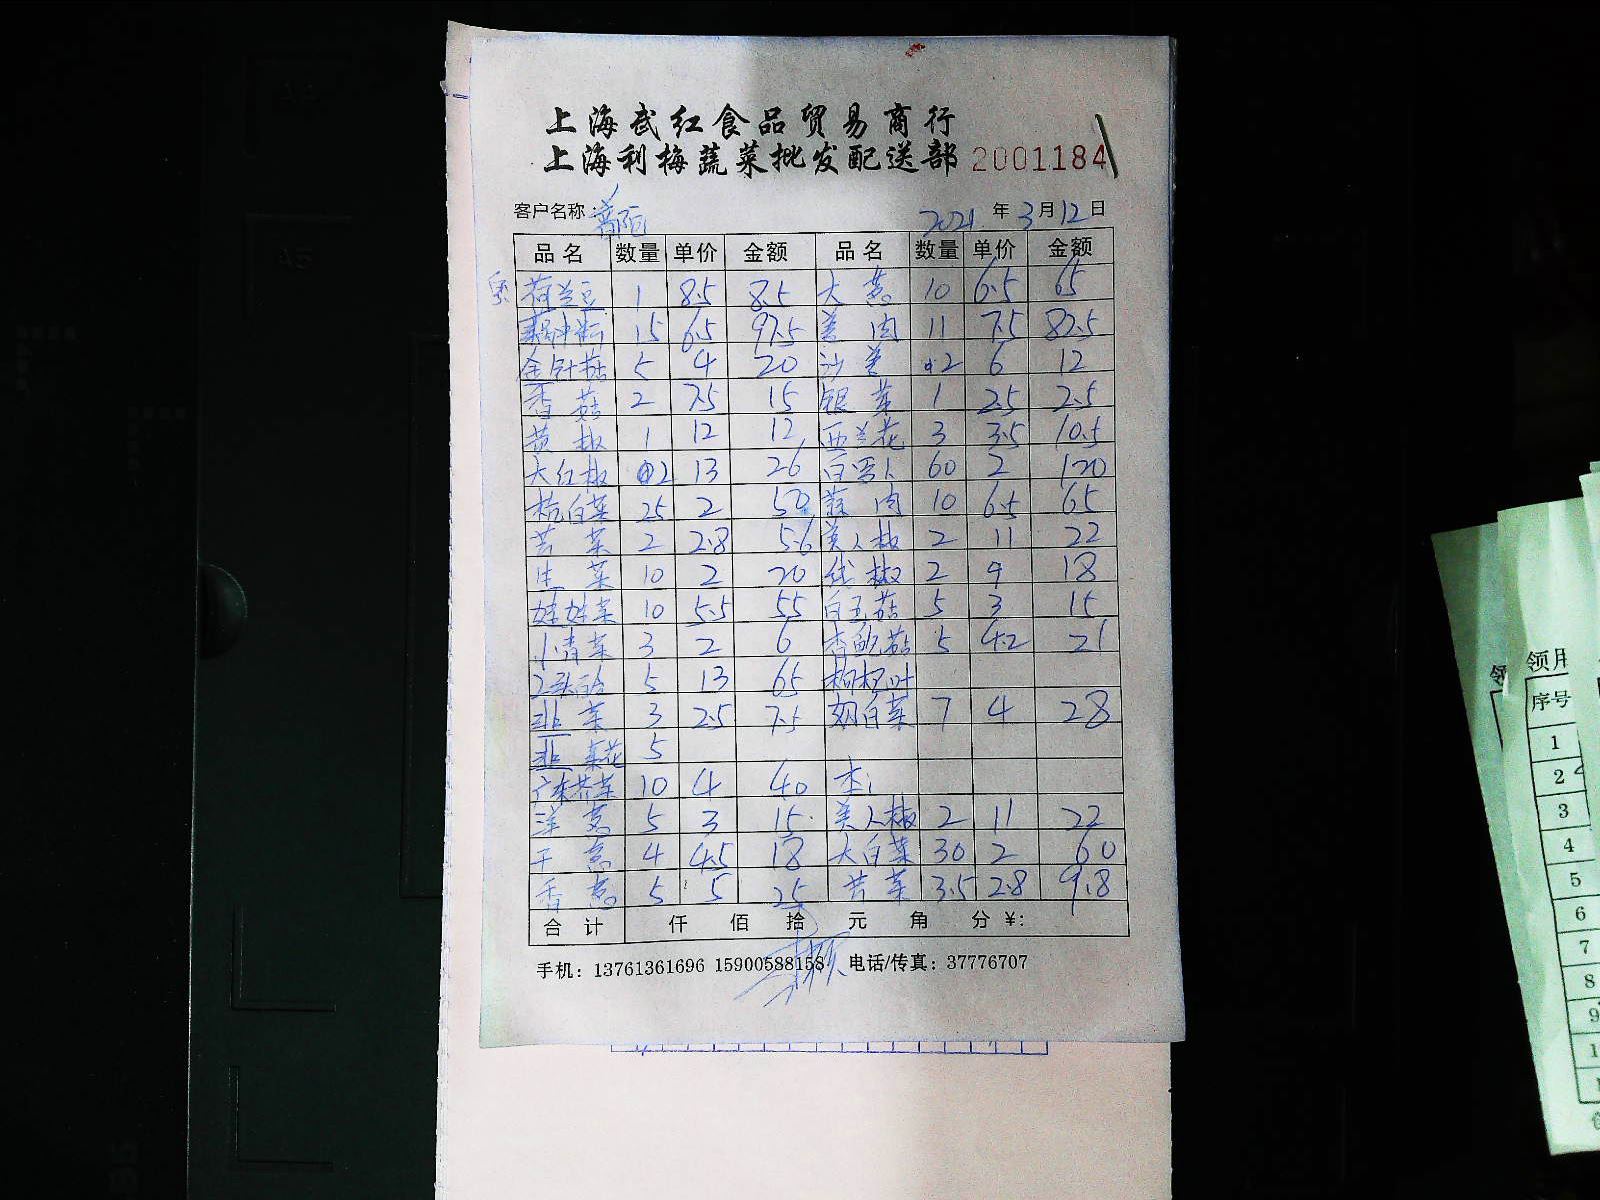 上海武红食品贸易商行
上海利梅蔬菜批发配送部 2001184
客户名称: 2021 年 3 月 12 日
品名 数量 单价 金额 品名 数量 单价 金额
荷兰豆 1 8.5 8.5 大葱 10 6.5 65
15 6.5 97.5 姜肉 11 7.5 82.5
金针菇 5 4 20 沙姜 2 6 12
香菇 2 7.5 15 银芽 1 2.5 2.5
黄椒 1 12 12 西兰花 3 3.5 10.5
大红椒 2 13 26 白萝卜 60 2 120
杭白菜 25 2 50 蒜肉 10 6.5 65
芹菜 2 2.8 5.6 美人椒 2 11 22
生菜 10 2 20 线椒 2 9 18
娃娃菜 10 5.5 55 白玉菇 5 3 15
小青菜 3 2 6 杏鲍菇 5 4.2 21
5 13 65 枸杞叶
韭菜 3 2.5 7.5 奶白菜 7 4 28
韭菜花 5
广东芥菜 10 4 40 本:
洋葱 5 3 15 美人椒 2 11 22
干葱 4 4.5 18 大白菜 30 2 60
香葱 5 5 25 芹菜 3.5 2.8 9.8
合计 仟 佰 拾 元 角 分 ¥:
手机: 13761361696 15900588158 电话/传真: 37776707
领用
序号
1
2
3
4
5
6
7
8
9